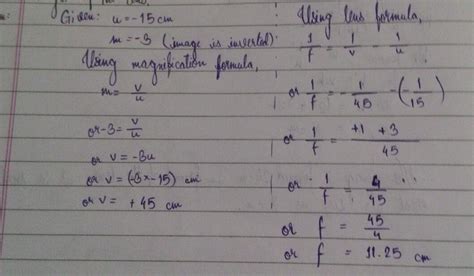 Given: u = -15 cm
m = -3 (image is inverted)
Using magnification formula,
m = v/u
or -3 = v/u
or v = -3u
or v = (-3 x -15) cm
or v = + 45 cm
Using lens formula,
1/f = 1/v - 1/u
or 1/f = 1/45 - (-1/15)
or 1/f = +1 + 3 / 45
or 1/f = 4/45
or f = 45/4
or f = 11.25 cm